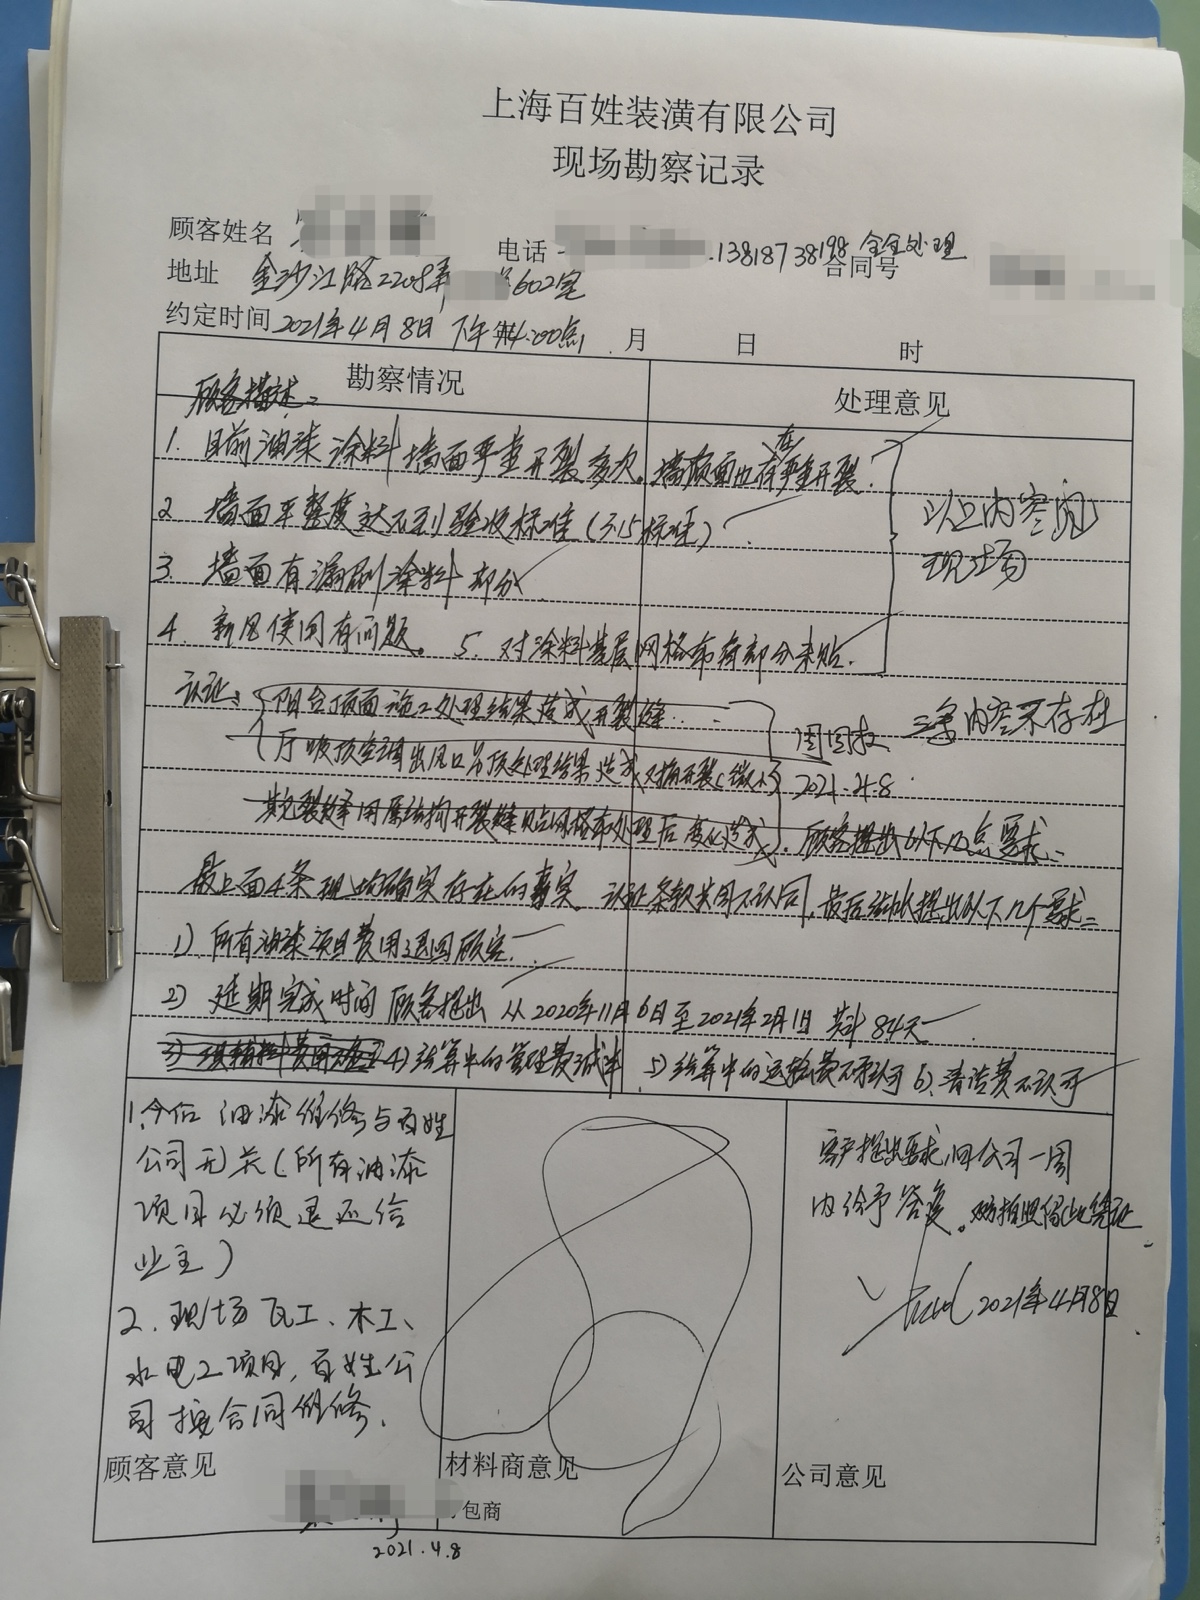 上海百姓装潢有限公司
现场勘察记录
顾客姓名
电话 .13818738198 全全处理
地址 金沙江路2208弄 602室 合同号
约定时间 2021年4月8日 下午 4:00点 月 日 时
勘察情况 处理意见
顾客描述:
1. 目前油漆涂料墙面严重开裂多次。墙顶面也存在严重开裂.
2 墙面平整度达不到验收标准(315标准)
以上内容见
现场
3. 墙面有漏刷涂料部分
4. 新风使用有问题。 5. 对涂料基层网格布有部分未贴.
认证: 阳台顶面施工处理结果造成开裂缝.
三条内容不存在
厅吸顶空调出风口吊顶处理结果造成对角开裂(微小)
2021.4.8
裂缝用原结构开裂缝贴网格布处理后变化造成. 顾客提出以下几点要求:
最上面4条现场确实存在的事实. 认证条款 不认同, 最后 提出以下几个要求:
1) 所有油漆项目费用退回顾客.
2) 延期完成时间 顾客提出 从2020年11月6日至2021年2月1日 共计84天
4) 结算中的管理费减半 5) 结算中的运输费不认可 6) 清洁费不认可
1.今后油漆维修与百姓
公司无关(所有油漆
项目必须退还给
业主)
2. 现场瓦工、木工、
水电工项目, 百姓公
司按合同维修.
顾客意见
2021.4.8
材料商意见
包商
客户提出要求, 回公司一周
内给予答复. 拍照留此凭证
2021年4月8日
公司意见